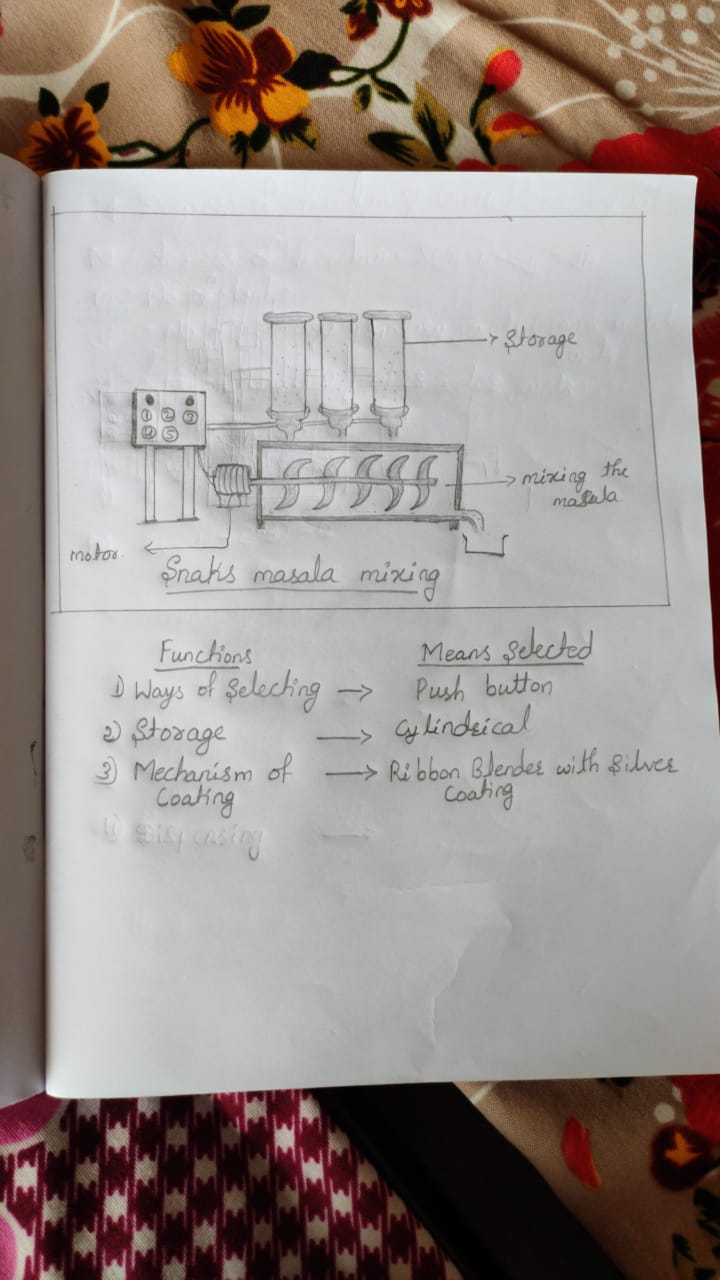 Storage
① ② ③
④ ⑤
mixing the
masala
motor.
Snaks masala mixing
Functions Means Selected
1) Ways of Selecting → Push button
2) Storage → Cylindrical
3) Mechanism of → Ribbon Blender with Silver
Coating Coating
Dispensing